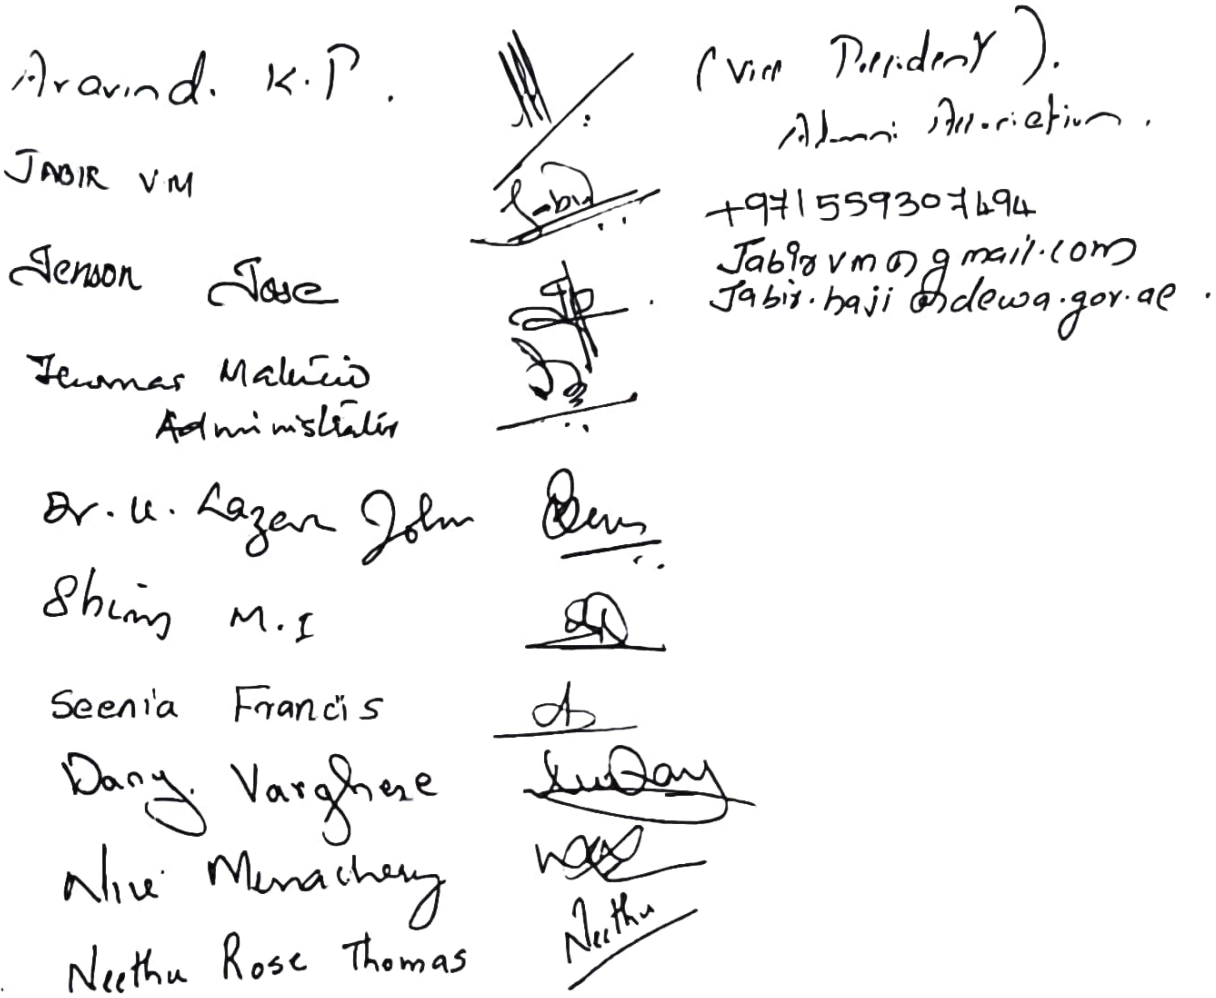 Aravind. K.P. (Vice President).
Alumni Association.
JABIR VM Jabir
+971559307494
Jabirvm@gmail.com
Jabir.haji@dewa.gov.ae.
Jenson Jose
Administrator
Dr. K. Lazer John
M.I
Seenia Francis
Dany. Varghese
Menachery
Neethu Rose Thomas Neethu